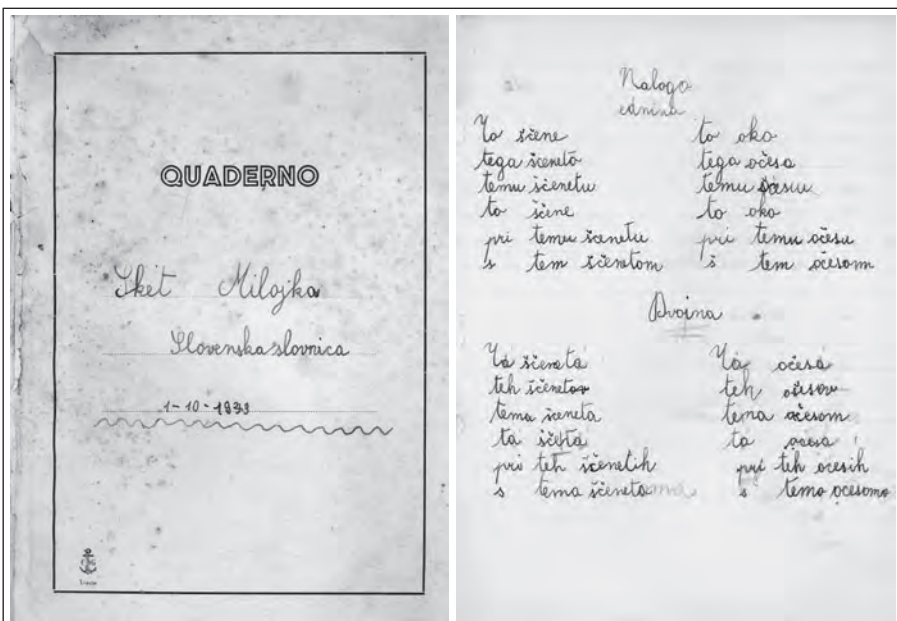 QUADERNO
Sket Milojka
Slovenska slovnica
1-10-1933
Naloga
ednina
To ščene
tega ščeneta
temu ščenetu
to ščene
pri temu ščenetu
s tem ščenetom
to oko
tega očesa
temu očesu
to oko
pri temu očesu
s tem očesom
Dvojina
Tá ščeneta
teh ščenetov
tema ščeneta
ta ščeta
pri teh ščenetih
s tema ščenetoma
Tá očesa
teh očesov
tema očesom
ta očesa
pri teh očesih
s tema očesoma